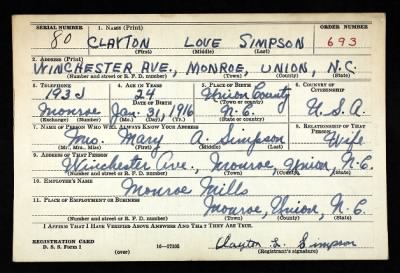 SERIAL NUMBER 1. NAME (Print) ORDER NUMBER
80 CLAYTON LOVE SIMPSON 693
(First) (Middle) (Last)
2. ADDRESS (Print)
WINCHESTER AVE., MONROE, UNION, N.C.
(Number and street or R. F. D. number) (Town) (County) (State)
3. TELEPHONE 4. AGE IN YEARS 5. PLACE OF BIRTH 6. COUNTRY OF CITIZENSHIP
193J 24 Union County
DATE OF BIRTH (Town or county)
Monroe Jan. 31, 1916 N.C. U.S.A.
(Exchange) (Number) (Mo.) (Day) (Yr.) (State or country)
7. NAME OF PERSON WHO WILL ALWAYS KNOW YOUR ADDRESS 8. RELATIONSHIP OF THAT PERSON
Mrs. Mary A. Simpson Wife
(Mr., Mrs., Miss) (First) (Middle) (Last)
9. ADDRESS OF THAT PERSON
Winchester Ave., Monroe, Union, N.C.
(Number and street or R. F. D. number) (Town) (County) (State)
10. EMPLOYER'S NAME
Monroe Mills
11. PLACE OF EMPLOYMENT OR BUSINESS
Monroe, Union, N.C.
(Number and street or R. F. D. number) (Town) (County) (State)
I AFFIRM THAT I HAVE VERIFIED ABOVE ANSWERS AND THAT THEY ARE TRUE.
REGISTRATION CARD
D. S. S. Form 1 (over) 16—17105 Clayton L. Simpson
(Registrant's signature)